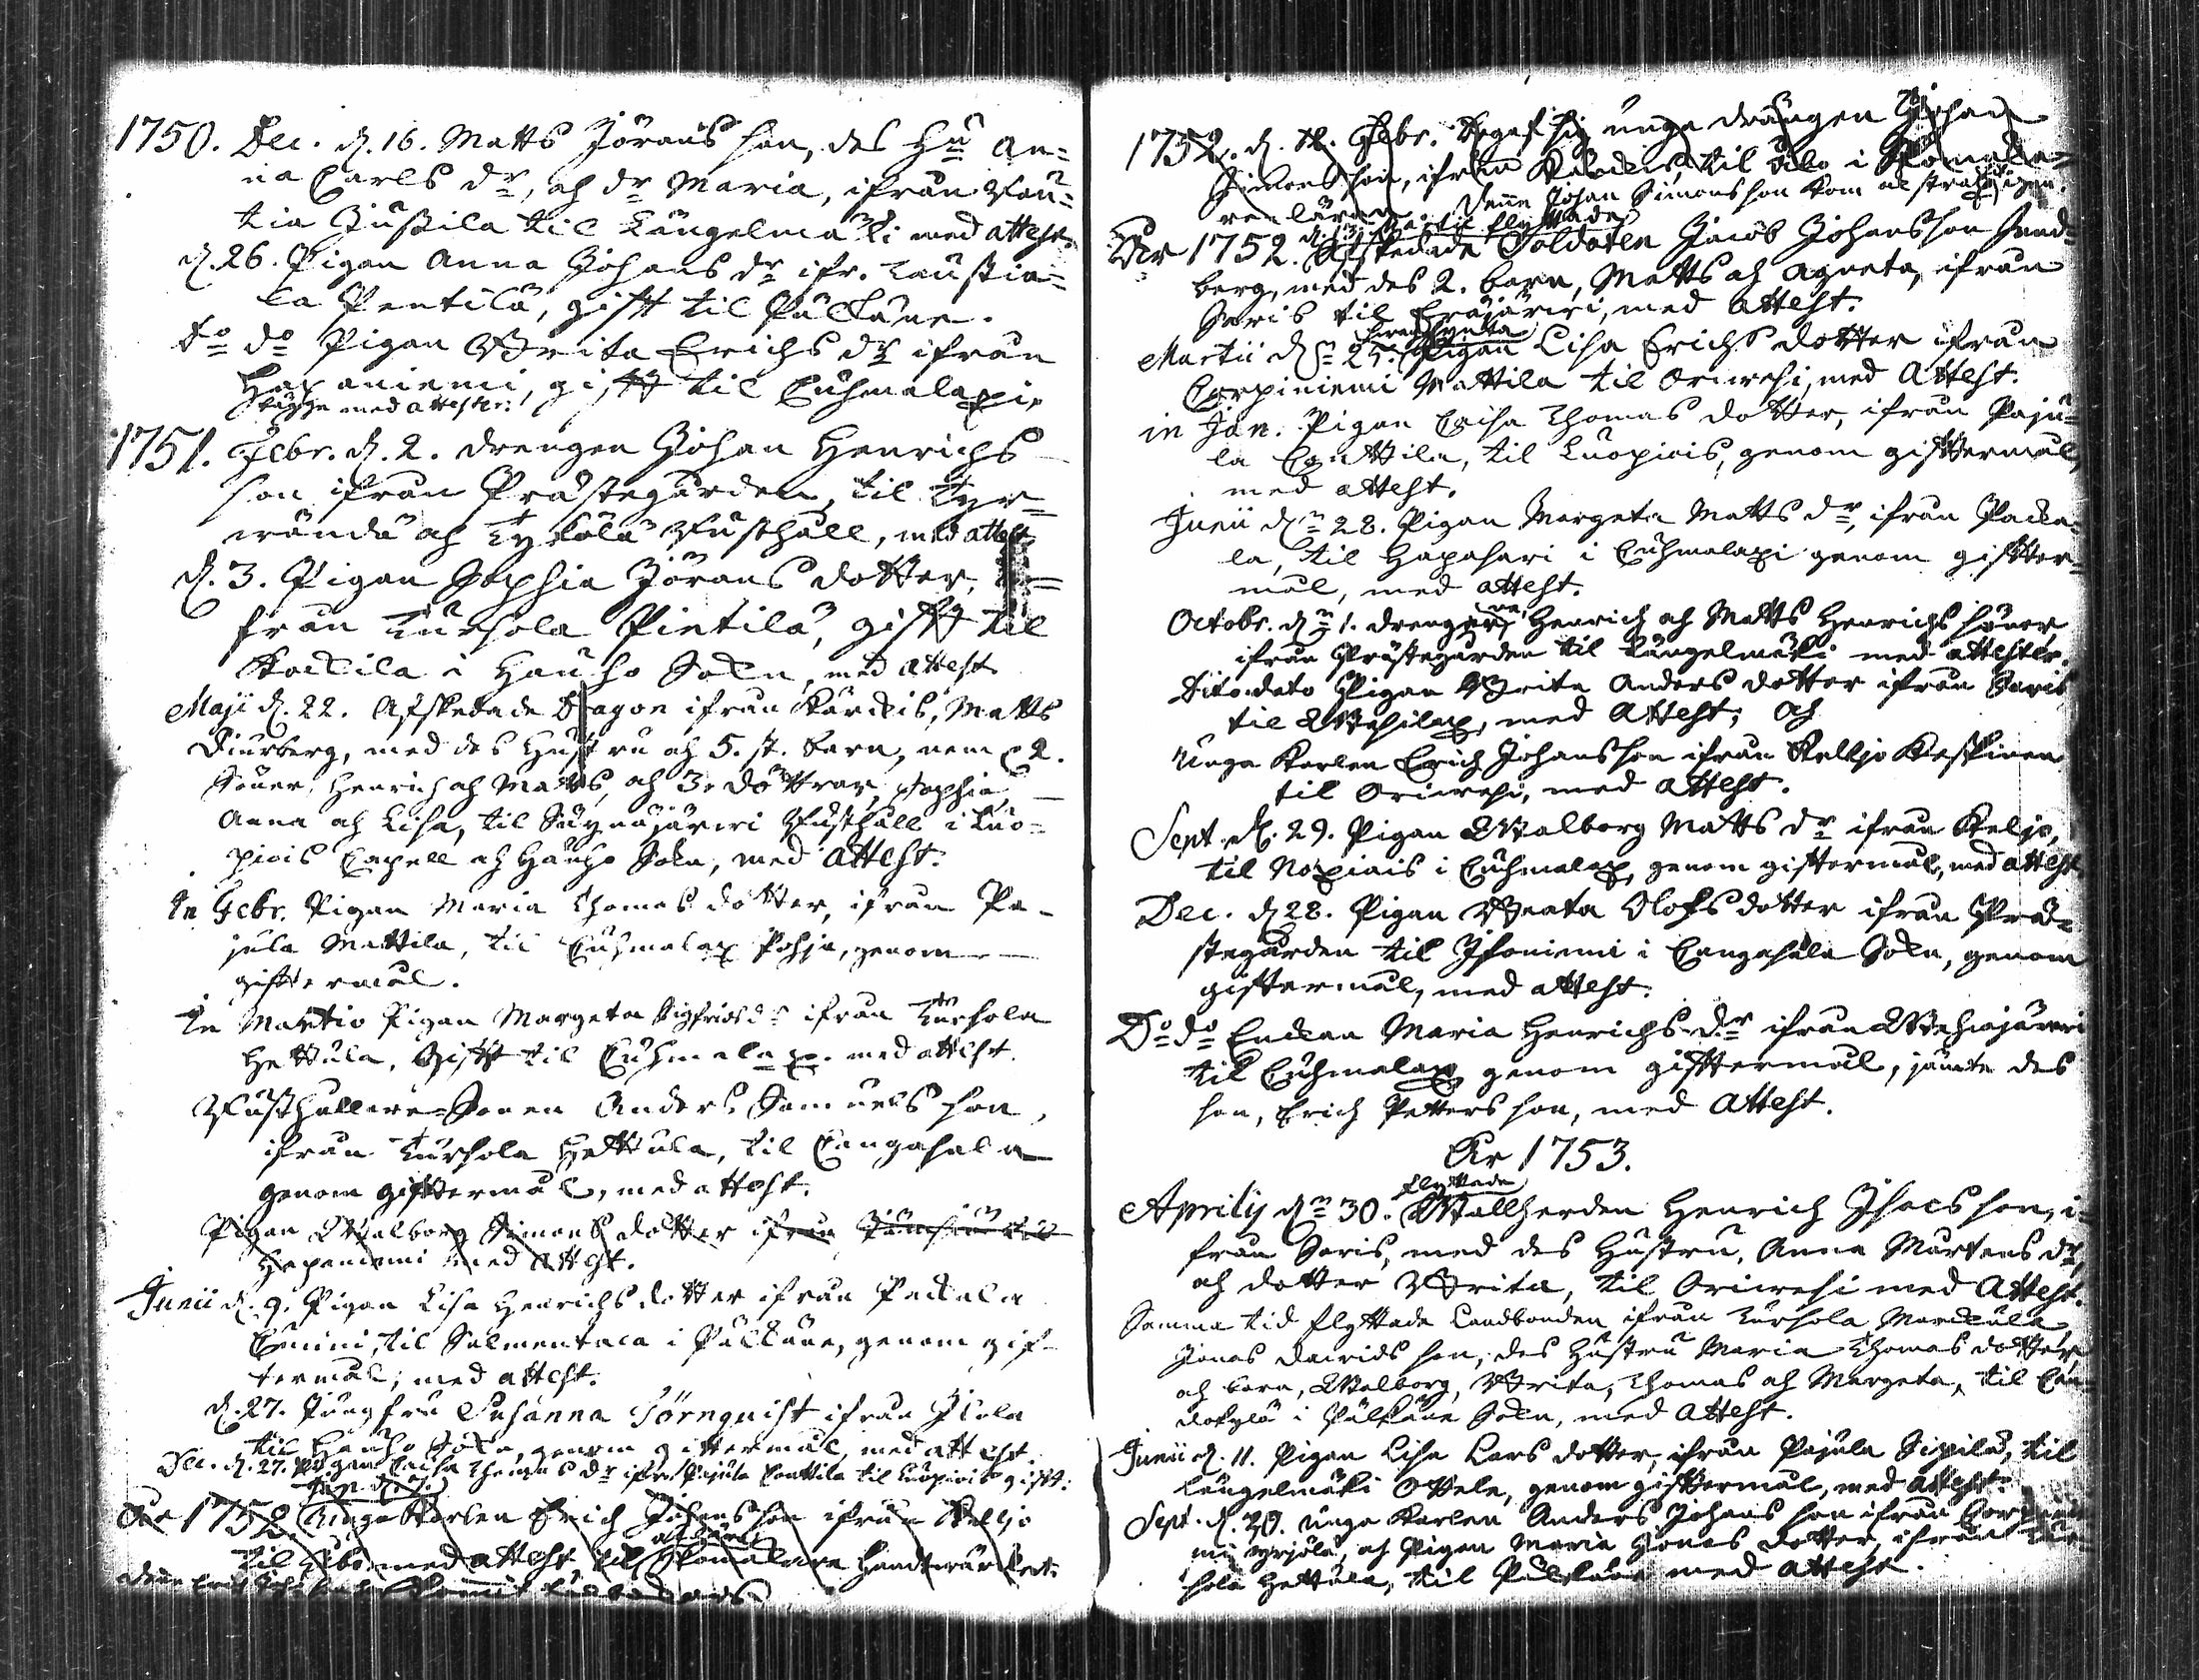 1750. Dec. d. 16. Matts Jöransson, des Hu An=
na Carls dr, och dr Maria, ifrån Pon=
tia Jussila til Längelmäki med attest
d. 26. Pigan Anna Johans dr ifr. Laustia=
la Pentilä, gift til Pälkäne.
do do Pigan Brita Erichs dr ifrån
Haxaniemi, gift til Cuhmalaxi,
begge med attester.
1751. Febr. d. 2. drengen Johan Henrichs
son ifrån Prästegården, til Tyr=
wändä och Kylälä Rusthåll, med attest
d. 3. Pigan Sophia Jörans dotter, i=
från Kurhola Pintilä, gift til
Kockila i Hauho Sokn, med attest
Maji d. 22. Afskedade Dragon ifrån Kärckis, Matts
Diurberg, med des Hustru och 5. st. barn, nem. 2.
Söner, Henrich och Matts, och 3. döttrar, Sophia
Anna och Lisa, til Syynäjärwi Rusthåll i Luo=
piois Capell och Hauho Sokn, med Attest.
In Febr. Pigan Maria Thomas dotter, ifrån Pa-
jula Mattila, til Cuhmalax Pohja, genom
giftermål.
In Martio Pigan Margeta Sigfrids dr ifrån Kurhola
Hettula, Gift til Cuhmalax. med attest.
Rusthållare=Sonen Anders Samuelsson,
ifrån Kurhola Hettula, til Cangasala
genom giftermål, med attest.
Pigan Walborg Simons dotter ifrån Jämsiu til
Hapaniemi med attest.
Junii d. 9. Pigan Lisa Henrichs dotter ifrån Packala
Cunini, til Salmentaca i Pälkäne, genom gif-
termål, med attest.
d. 27. Jungfru Susanna Törnquist ifrån Isola
til Hauho Sokn, genom giftermål, med attest.
Dec. d. 27. Pigan Caisa Thomas dr ifr. Pajula Conttila til Luopiois gift.
År 1752. Unga Karlen Erich Johansson ifrån Keljo
til Åbo med attest til Skomakare handtwärket.
1752. d. Febr. begaf sig unga drängen Johan
Simonsson, ifrån Kärckis, til Åbo i Skomaka=
relära. Denne Johan Simonsson kom al strax igen.
d. 13. Martii flyttade
År 1752. Afskedade Soldaten Jacob Johansson Sand=
berg, med des 2. barn, Matts och Agneta, ifrån
Saris til Eräjärwi, med Attest.
Martii dn 25. Pigan Lisa Erichs dotter ifrån
Corpiniemi Mattila til Oriwesi, med Attest.
in Jan. Pigan Caisa Thomas dotter, ifrån Paju=
la Conttila, til Luopiois, genom giftermål,
med attest.
Junii dn 28. Pigan Margeta Matts dr, ifrån Packa=
la, til Hapasari i Cuhmalaxi genom gifter=
mål, med attest.
Octobr. dn 1. drengarne Henrich och Matts Henrichs söner
ifrån Prästegården til Längelmäki med attester.
Dito dato Pigan Brita Anders dotter ifrån Saris
til Wesilax, med Attest; och
Unga Karlen Erich Johansson ifrån Keljo Keskinen
til Oriwesi, med attest.
Sept. d. 29. Pigan Walborg Matts dr ifrån Keljo,
til Nopiais i Cuhmalax, genom giftermål, med attest
Dec. d 28. Pigan Beata Olofs dotter ifrån Prä=
stegården til Isoniemi i Cangasala Sokn, genom
giftermål, med attest.
Do do Enckan Maria Henrichs dr ifrån Wehkajärwi
til Cuhmalax genom giftermål, jämte des
son, Erich Pettersson, med Attest.
År 1753.
flyttade
Aprilij dn 30. Wallherden Henrich Isacsson, i=
från Saris, med des Hustru, Anna Mårtens dr,
och dotter Brita, til Oriwesi med Attest.
Samma tid flyttade Landbonden ifrån Kurhola Marckula
Jonas Davidsson, des Hustru Maria Thomas dotter
och barn, Walborg, Brita, Thomas och Margeta, til Can=
dokylä i Pälkäne Sokn, med Attest.
Junii d. 11. Pigan Lisa Lars dotter, ifrån Pajula Sipilä, til
Längelmäki Attala, genom giftermål, med attest.
Sept. d. 20. Unga Karlen Anders Johansson ifrån Corpinie
mi Yrjölä, och Pigan Maria Jonas dotter, ifrån Kur=
hola Hettula, til Pälkäne med attest.